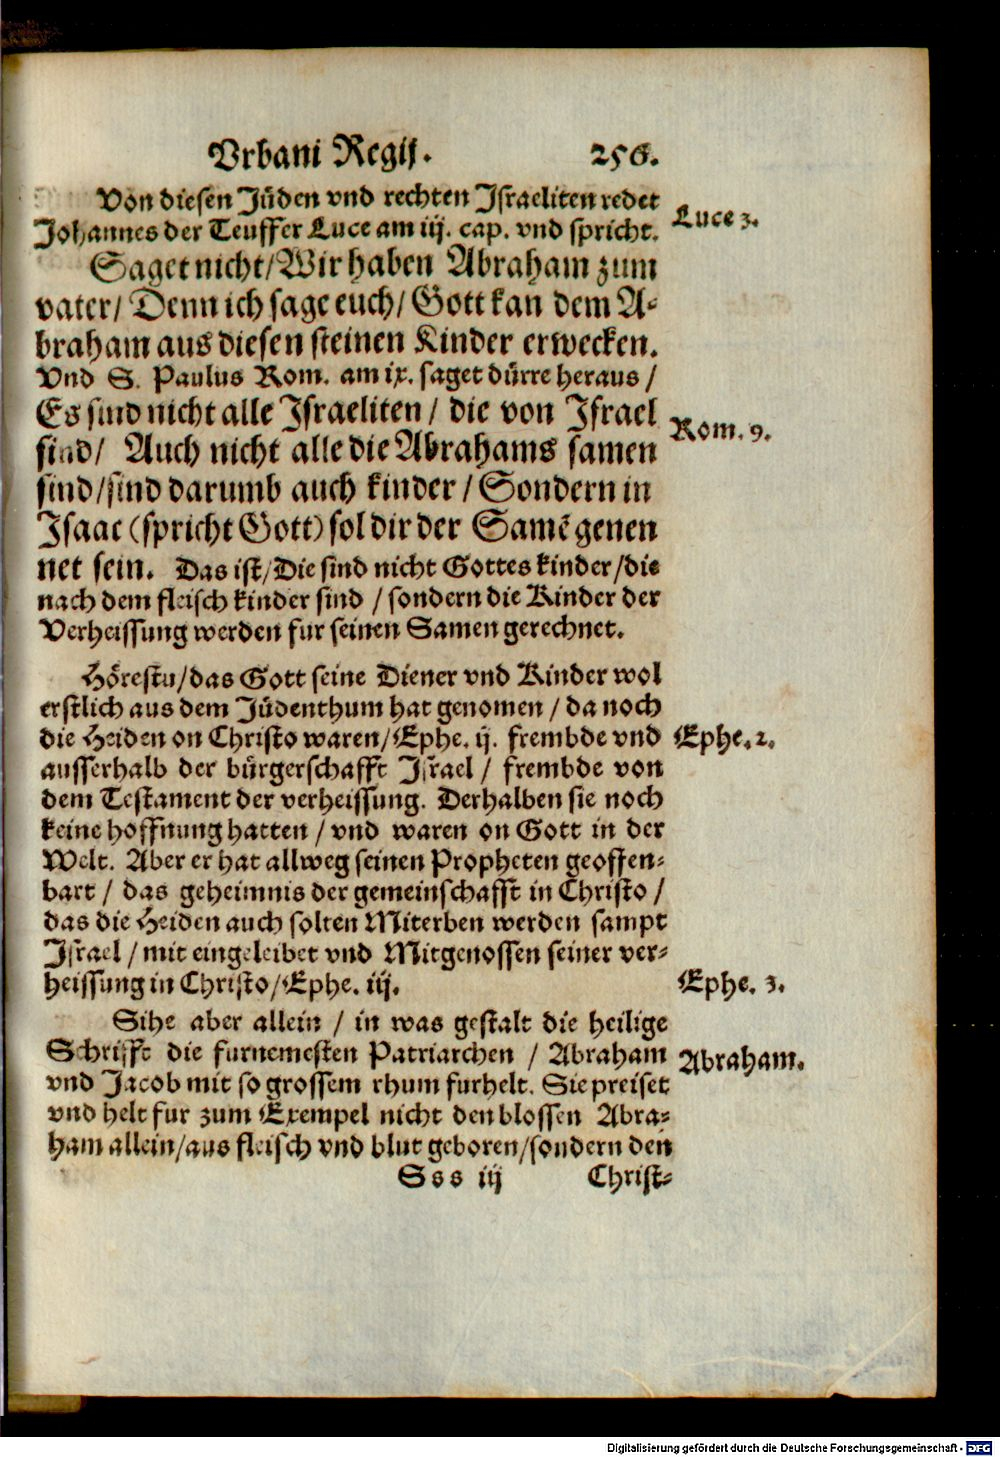 Vrbani Regij. 256.
Von diesen Jüden vnd rechten Israeliten redet
Johannes der Teuffer Luce am iij. cap. vnd spricht.
Luce 3.
Saget nicht/Wir haben Abraham zum
vater/ Denn ich sage euch/ Gott kan dem A-
braham aus diesen steinen Kinder erwecken.
Vnd S. Paulus Rom. am ix. saget dürre heraus /
Es sind nicht alle Israeliten / die von Israel
Rom. 9.
sind/ Auch nicht alle die Abrahams samen
sind/sind darumb auch kinder / Sondern in
Isaac (spricht Gott) sol dir der Samē genen
net sein. Das ist/Die sind nicht Gottes kinder/die
nach dem fleisch kinder sind / sondern die Kinder der
Verheissung werden fur seinen Samen gerechnet.
Hörestu/das Gott seine Diener vnd Kinder wol
erstlich aus dem Jüdenthum hat genomen / da noch
die Heiden on Christo waren/Ephe. ij. frembde vnd
Ephe. 2.
ausserhalb der bürgerschafft Israel / frembde von
dem Testament der verheissung. Derhalben sie noch
keine hoffnung hatten / vnd waren on Gott in der
Welt. Aber er hat allweg seinen Propheten geoffen-
bart / das geheimnis der gemeinschafft in Christo /
das die Heiden auch solten Miterben werden sampt
Israel / mit eingeleibet vnd Mitgenossen seiner ver-
heissung in Christo/Ephe. iij.
Ephe. 3.
Sihe aber allein / in was gestalt die heilige
Schrifft die furnemesten Patriarchen / Abraham
Abraham.
vnd Jacob mit so grossem rhum furhelt. Sie preiset
vnd helt fur zum Exempel nicht den blossen Abra-
ham allein/aus fleisch vnd blut geboren/sondern den
Sss iij Christ-
Digitalisierung gefördert durch die Deutsche Forschungsgemeinschaft - DFG